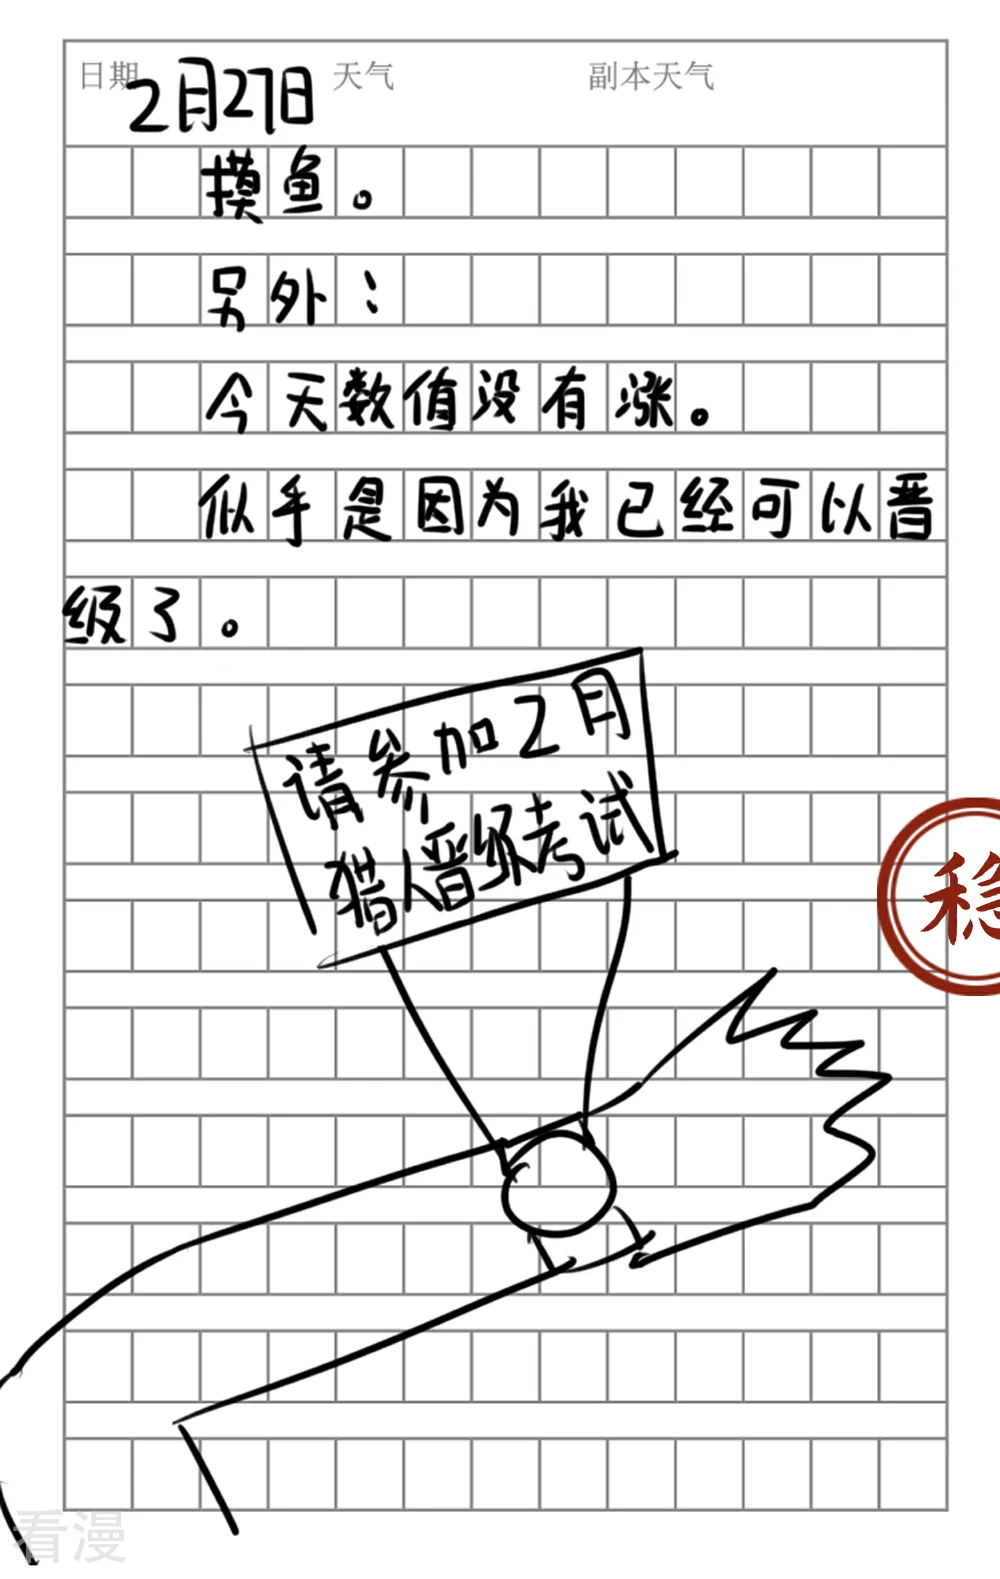 日期 2月27日 天气 副本天气
摸鱼。
另外：
今天数值没有涨。
似乎是因为我已经可以晋
级了。
请参加2月
猎人晋级考试
稳
看漫